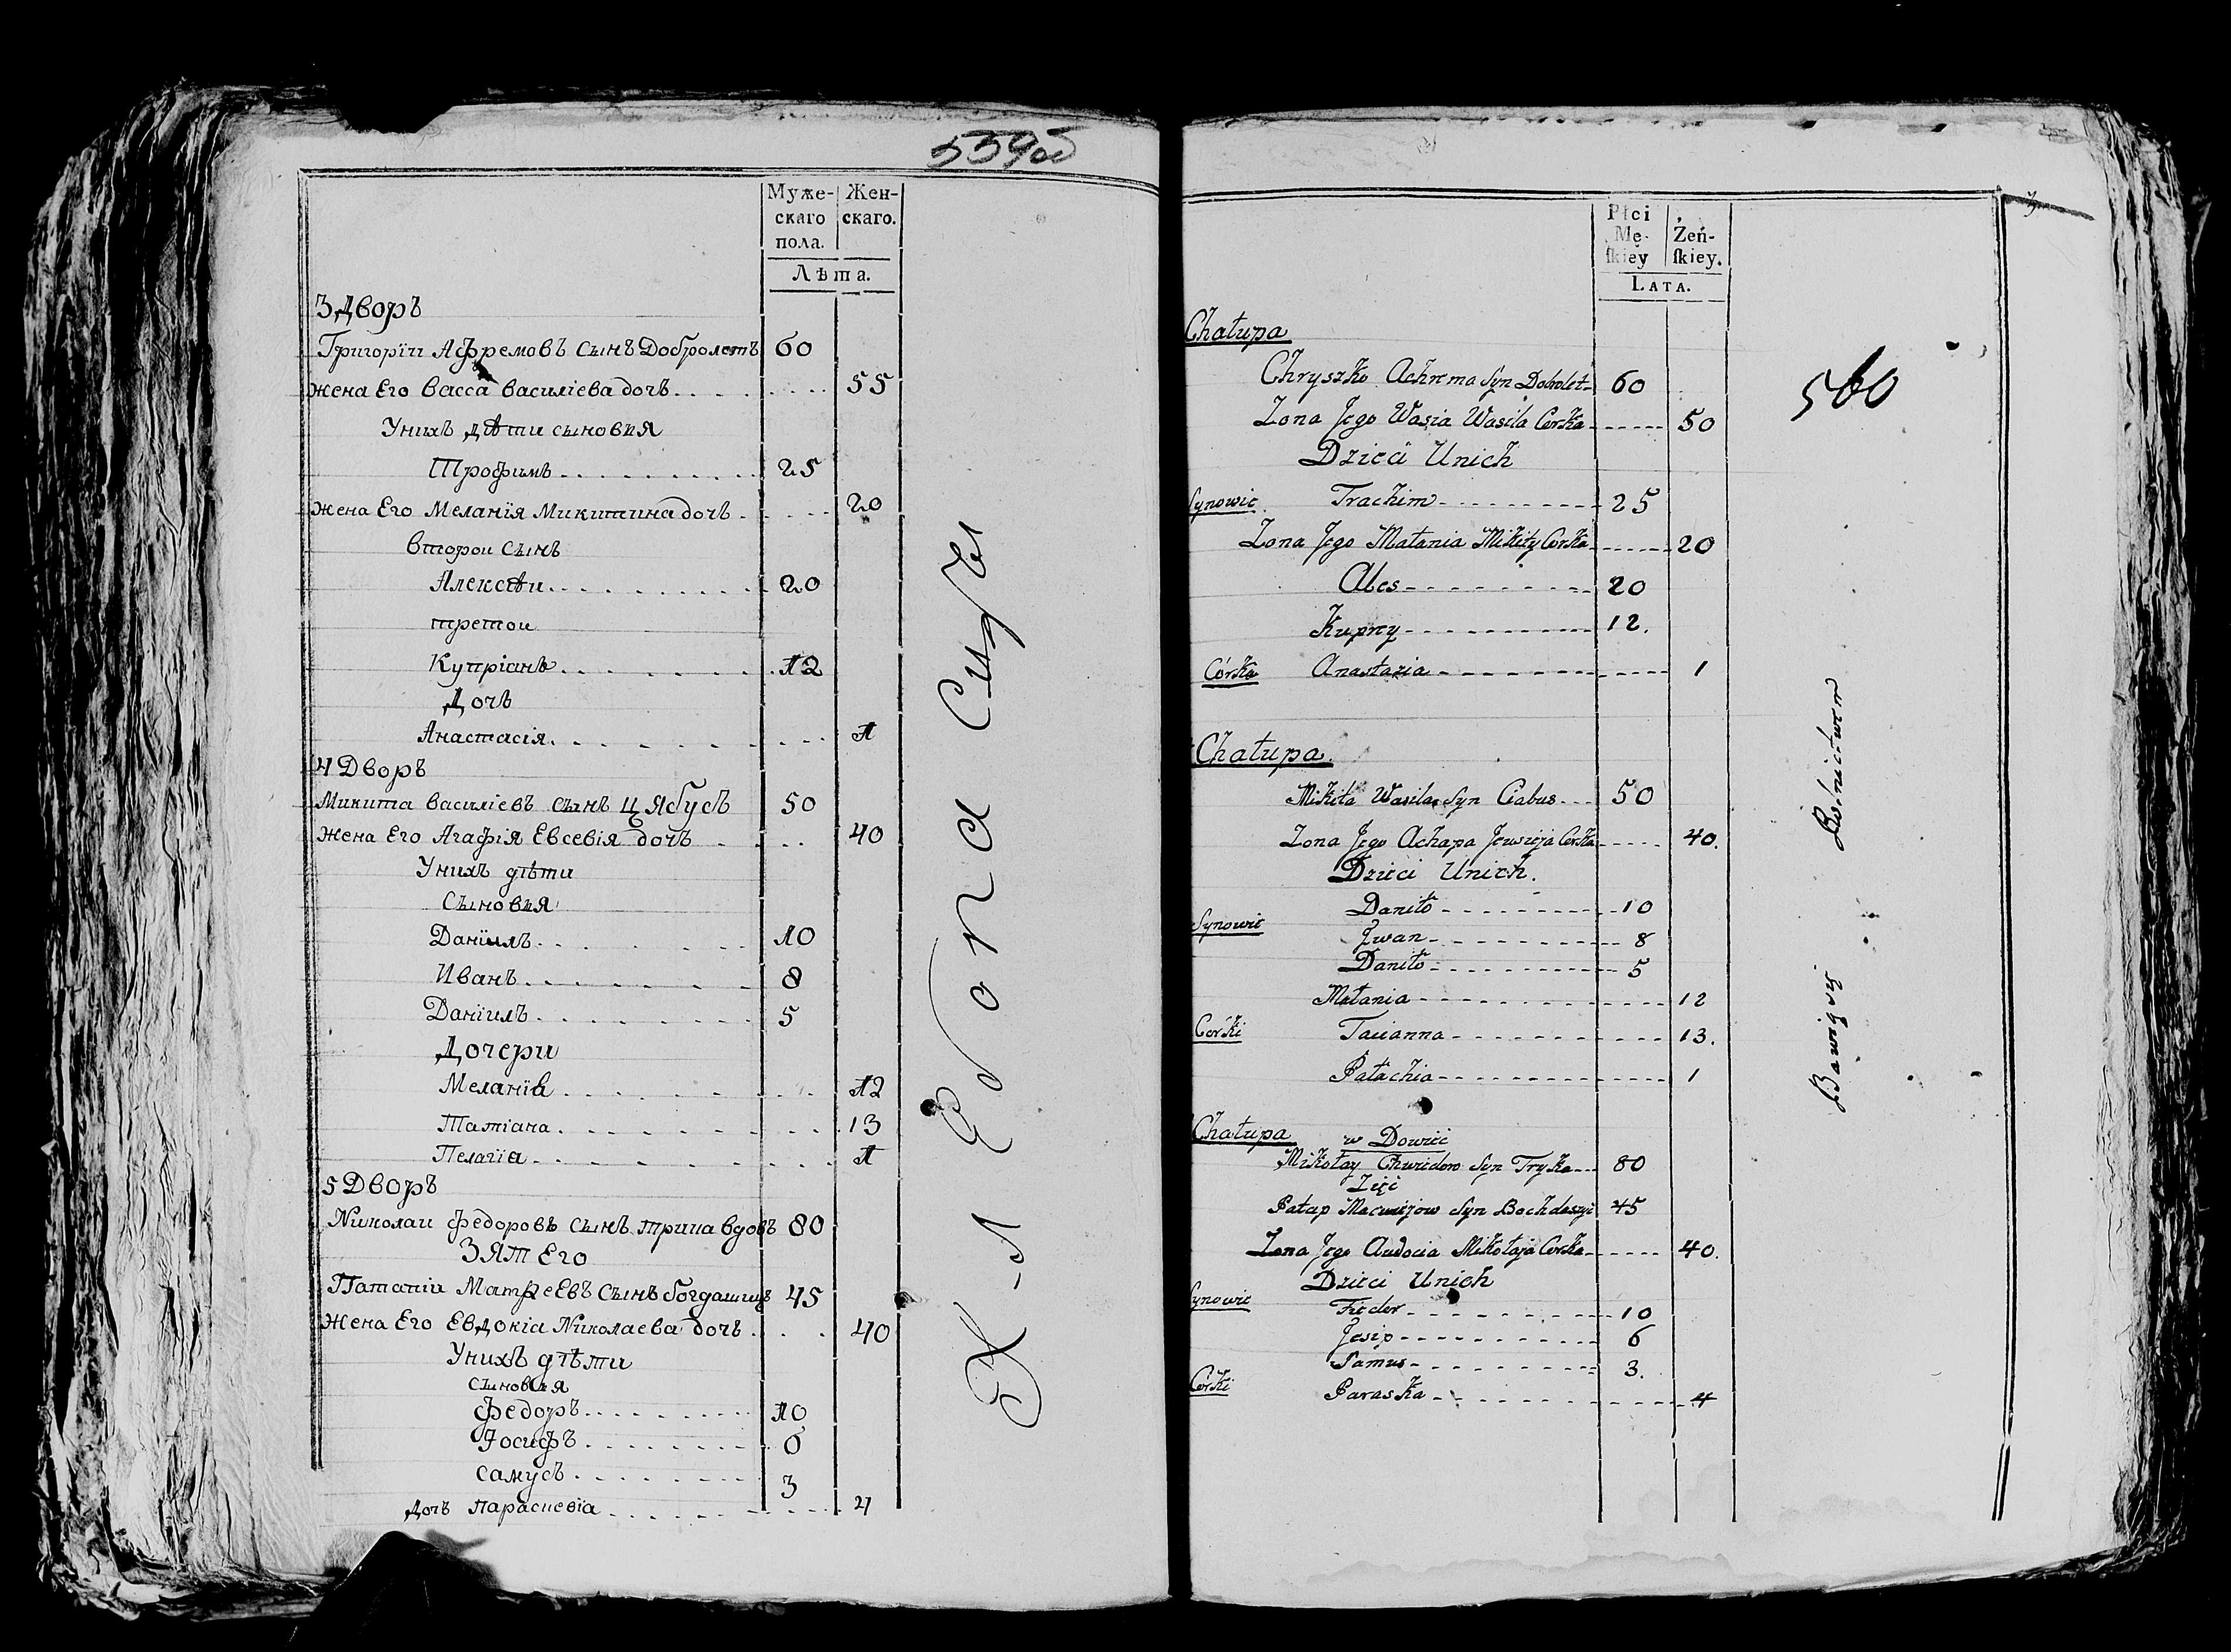 559об
Муже- Жен-
скаго скаго.
пола.
Лѣта.
3 Дворъ
Григории Афремовъ сынъ Добролетъ 60
жена Его Васса Василіева дочь 55
Унихъ дѣти сыновья
Трофимъ 25
жена Его Меланїя Микитина дочь 20
второи сынъ
Алексѣи 20
третои
Купріанъ 12
Дочь
Анастасія 1
4 Дворъ
Микита Василіевъ сынъ Цябусъ 50
жена Его Агафія Евсевія дочь 40
Унихъ дѣти
Сыновья
Данїилъ 10
Иванъ 8
Данїилъ 5
Дочери
Меланїя 12
Татіана 13
Пелагїа 1
5 Дворъ
Николаи Федоровъ сынъ трика вдовъ 80
Зят Его
Патапіи Матфеевъ сынъ 45
Жена Его Евдокіа Николаева дочь 40
Унихъ дѣти
сыновья
Федоръ 10
Іосифъ 6
Самусь 3
Дочь Параскевїа 4
Płci Żeń-
Mę- ſkiey.
ſkiey
LATA.
560
Chałupa
Chryszko Achrema Syn Dobolet 60
Zona Jego Wasia Wasila Corka 50
Dzieci Unich
Synowie Trachim 25
Zona Jego Małania Mikity Corka 20
Ales 20
Kuprey 12.
Córka Anastazia 1
Chałupa.
Mikita Wasila Syn Ciabus 50
Zona Jego Achapa Jewsieja Corka 40.
Dzieci Unich.
Daniło 10
Synowie Jwan 8
Daniło 5
Małania 12
Corki Tacianna 13.
Pałachia 1
Chałupa w Dowieć
Mikołay Chwiedora Syn Tryka 80
Zięć
Patap Macwiejow Syn 45
Zona Jego Audocia Mikołaja Corka 40.
Dzieci Unich
Synowie Fiedor 10
Josip 6
Samus 3.
Corki Paraska 4